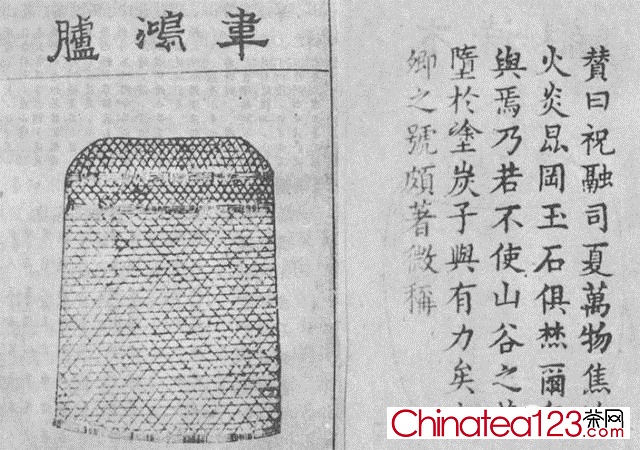 韋鴻臚
贊曰祝融司夏萬物焦
火炎昆岡玉石俱焚爾
與焉乃若不使山谷之
墮於塗炭子與有力矣
卿之號頗著微稱
Chinatea123.com
茶网